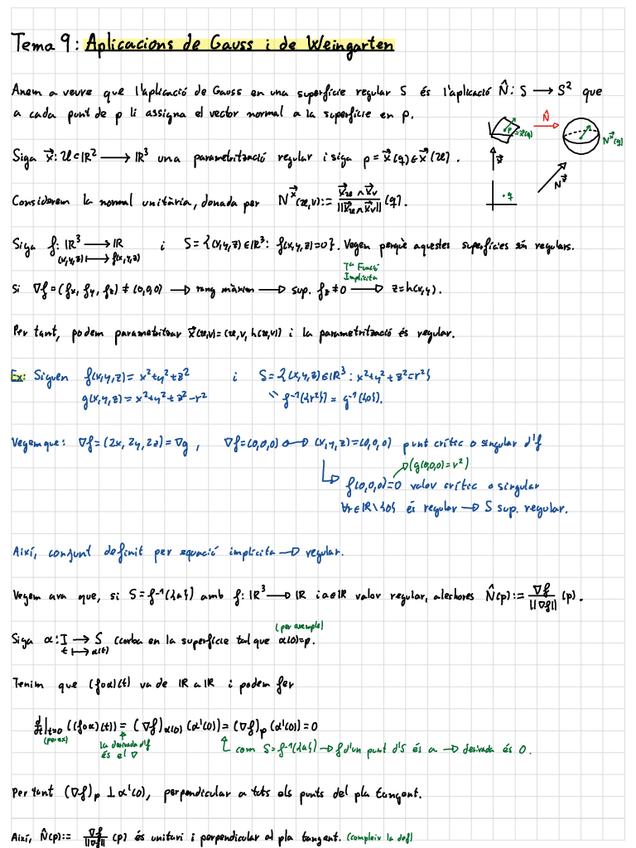 Tema 9: Aplicacions de Gauss i de Weingarten
Anem a veure que l'aplicació de Gauss en una superfície regular S és l'aplicació N̂: S → S² que
a cada punt de p li assigna el vector normal a la superfície en p.
N̂
Siga x⃗: U⊂ℝ² → ℝ³ una parametrització regular i siga p = x⃗(q) ∈ x⃗(U).
Considerem la normal unitària, donada per N^x⃗(u,v) := (x⃗u ∧ x⃗v)/||x⃗u ∧ x⃗v|| (q).
Siga f: ℝ³ → ℝ i S = {(x,y,z) ∈ ℝ³: f(x,y,z)=0}. Vegem perquè aquestes superfícies són regulars.
(x,y,z) ↦ f(x,y,z)
Tª Funció
Implícita
Si ∇f = (fx, fy, fz) ≠ (0,0,0) → rang màxim → sup. fz ≠ 0 → z=h(x,y).
Per tant, podem parametritzar x⃗(u,v)=(u,v,h(u,v)) i la parametrització és regular.
Ex: Siguen f(x,y,z) = x²+y²+z² i S = {(x,y,z)∈ℝ³: x²+y²+z²=r²}
g(x,y,z) = x²+y²+z²-r² f⁻¹({r²}) = g⁻¹({0}).
Vegem que: ∇f = (2x, 2y, 2z) = ∇g, ∇f=(0,0,0) ↔ (x,y,z)=(0,0,0) punt crític o singular d'f
(g(0,0,0)=r²)
f(0,0,0)=0 valor crític o singular
∀r∈ℝ\{0} és regular → S sup. regular.
Així, conjunt definit per equació implícita → regular.
Vegem ara que, si S = f⁻¹({a}) amb f: ℝ³ → ℝ i a∈ℝ valor regular, aleshores N̂(p) := ∇f/||∇f|| (p).
(per exemple)
Siga α: I → S corba en la superfície tal que α(0)=p.
t ↦ α(t)
Tenim que (f∘α)(t) va de ℝ a ℝ i podem fer
d/dt|t=0 ((f∘α)(t)) = (∇f)α(0) (α'(0)) = (∇f)p (α'(0)) = 0
(per ex) la derivada d'f
és el ∇
com S=f⁻¹({a}) → f d'un punt d'S és a → derivada és 0.
Per tant (∇f)p ⊥ α'(0), perpendicular a tots els punts del pla tangent.
Així, N̂(p) := ∇f/||∇f|| (p) és unitari i perpendicular al pla tangent. (compleix la def)